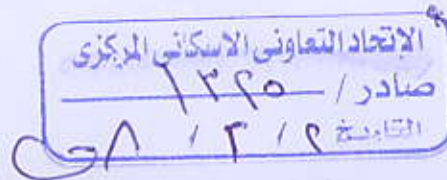 الإتحاد التعاونى الاسكانى المركزى
صادر / ١٣٢٥
التاريخ ٢ / ٣ / ٨